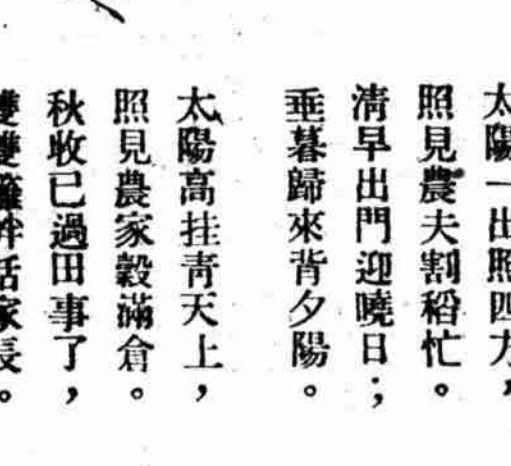 太陽一出照四方，
照見農夫割稻忙。
清早出門迎曉日；
垂暮歸來背夕陽。
太陽高挂青天上，
照見農家穀滿倉。
秋收已過田事了，
雙雙籬畔話家長。